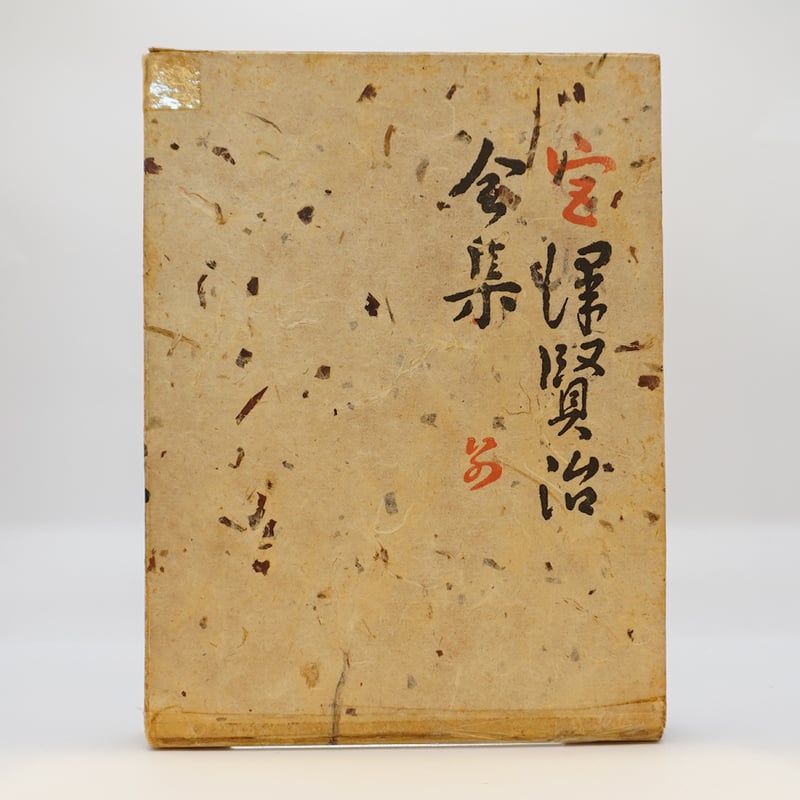 宮澤賢治
全集